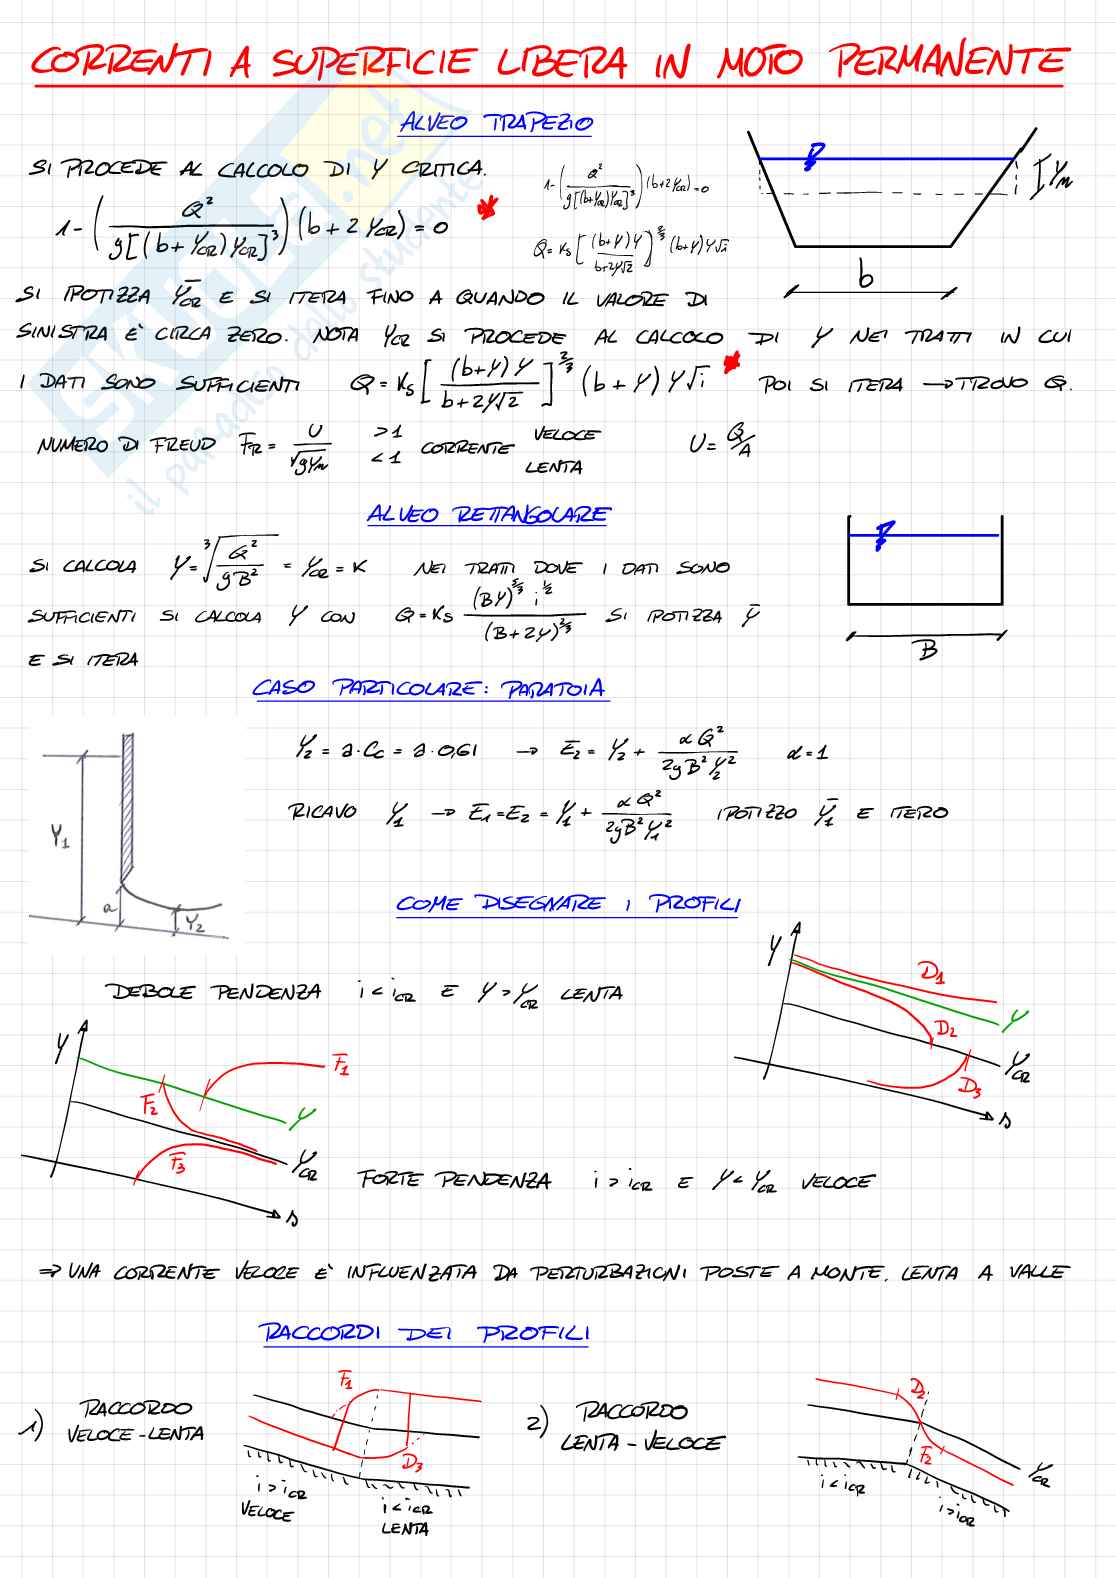 CORRENTI A SUPERFICIE LIBERA IN MOTO PERMANENTE
ALVEO TRAPEZIO
SI PROCEDE AL CALCOLO DI Y CRITICA.
1-(Q²/(g[(b+Y_CR)Y_CR]³))(b+2Y_CR)=0
1-(Q²/(g[(b+Y_CR)Y_CR]³))(b+2Y_CR)=0
Q=K_S[(b+Y)Y/(b+2Y√2)]^(2/3)(b+Y)Y√i
Y_m
b
SI IPOTIZZA Y̅_CR E SI ITERA FINO A QUANDO IL VALORE DI
SINISTRA È CIRCA ZERO. NOTA Y_CR SI PROCEDE AL CALCOLO DI Y NEI TRATTI IN CUI
I DATI SONO SUFFICIENTI Q=K_S[(b+Y)Y/(b+2Y√2)]^(2/3)(b+Y)Y√i POI SI ITERA → TROVO Q.
NUMERO DI FREUD F_R = U/√(gY_m) >1 <1 CORRENTE VELOCE LENTA U=Q/A
ALVEO RETTANGOLARE
SI CALCOLA Y=³√(Q²/(gB²)) = Y_CR = K NEI TRATTI DOVE I DATI SONO
SUFFICIENTI SI CALCOLA Y CON Q=K_S (BY)^(5/3) i^(1/2)/(B+2Y)^(2/3) SI IPOTIZZA Y̅
E SI ITERA
B
CASO PARTICOLARE: PARATOIA
Y₂ = a·C_C = a·0,61 → E₂ = Y₂ + αQ²/(2gB²Y₂²) α=1
RICAVO Y₁ → E₁=E₂ = Y₁ + αQ²/(2gB²Y₁²) IPOTIZZO Y̅₁ E ITERO
Y₁
a
Y₂
COME DISEGNARE I PROFILI
DEBOLE PENDENZA i<i_CR E Y>Y_CR LENTA
Y
D1
Y
D2
Y_CR
D3
s
Y
F1
F2
Y
F3
Y_CR
s
FORTE PENDENZA i>i_CR E Y<Y_CR VELOCE
⇒ UNA CORRENTE VELOCE È INFLUENZATA DA PERTURBAZIONI POSTE A MONTE. LENTA A VALLE
RACCORDI DEI PROFILI
1) RACCORDO
VELOCE-LENTA
F1
D3
i>i_CR
VELOCE
i<i_CR
LENTA
2) RACCORDO
LENTA-VELOCE
D2
F2
Y_CR
i<i_CR
i>i_CR
SKUOLA.net
il paradiso dello studente